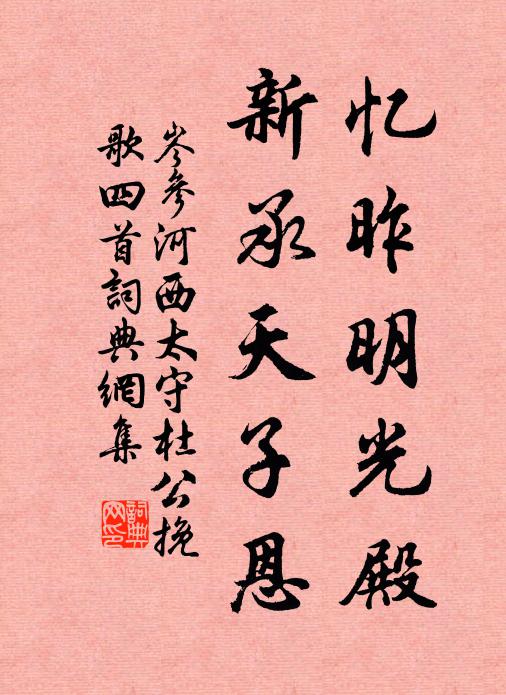 忆昨明光殿
新承天子恩
岑參河西太守杜公挽
歌四首詞典網集
詞典网印